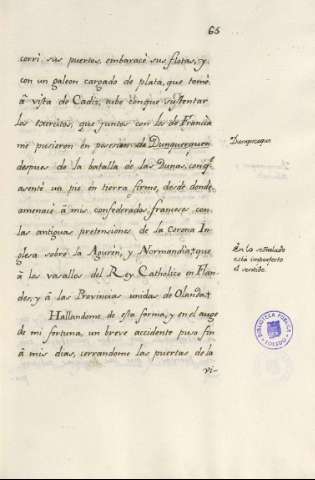 65
corri sus puertos, embaracé sus flotas, y
con un galeon cargado de plata, que tomé
á vista de Cadiz, tube conque sustentar
los exercitos, que juntos con los de Francia
me pusieron en posesion de Dunquerquen
despues de la batalla de las Dunas, conq.e
asenté un pie en tierra firme, desde donde
amenacé á mis confederados franceses con
las antiguas pretensiones de la Corona In-
glesa sobre la y Normandia, que
á los vasallos del Rey Catholico en Flan-
des, y á las Provincias unidas de Olanda.
Hallandome de esta forma, y en el auge
de mi fortuna, un breve accidente puso fin
á mis dias, cerrandome las puertas de la
vi-
Dunquerque
En lo
está imperfecto
el sentido.
BIBLIOTECA PUBLICA
TOLEDO